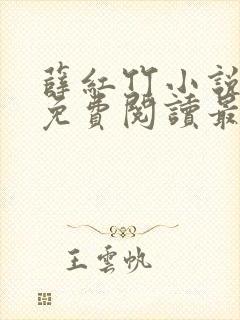 薛紅竹小說
免費閱讀最
王雲帆